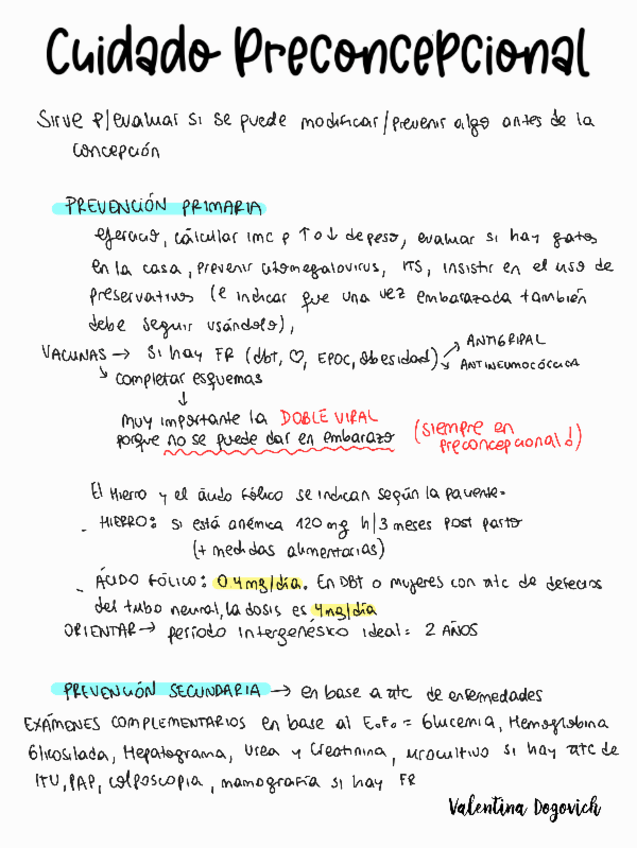 Cuidado Preconcepcional
Sirve p/evaluar si se puede modificar/prevenir algo antes de la
concepción
PREVENCIÓN PRIMARIA
ejercicio, cálcular imc p ↑ o ↓ de peso, evaluar si hay gatos
en la casa, prevenir citomegalovirus, ITS, insistir en el uso de
preservativos (e indicar que una vez embarazada también
debe seguir usándolo),
VACUNAS → Si hay FR (dbt, ♡, EPOC, obesidad) → ANTIGRIPAL
→ ANTINEUMOCÓCCICA
↳ completar esquemas
↓
muy importante la DOBLE VIRAL
porque no se puede dar en embarazo (siempre en
preconcepcional!)
El Hierro y el ácido fólico se indican según la paciente.
- HIERRO: si está anémica 120 mg h/3 meses post parto
(+ medidas alimentarias)
- ÁCIDO FÓLICO: 0.4mg/día. En DBT o mujeres con atc de defectos
del tubo neural, la dosis es 4mg/día
ORIENTAR → período intergenésico ideal = 2 AÑOS
PREVENCIÓN SECUNDARIA → en base a atc de enfermedades
EXÁMENES COMPLEMENTARIOS en base al E.F. = Glucemia, Hemoglobina
Glicosilada, Hepatograma, Urea y Creatinina, urocultivo si hay atc de
ITU, PAP, colposcopia, mamografía si hay FR
Valentina Dogovich